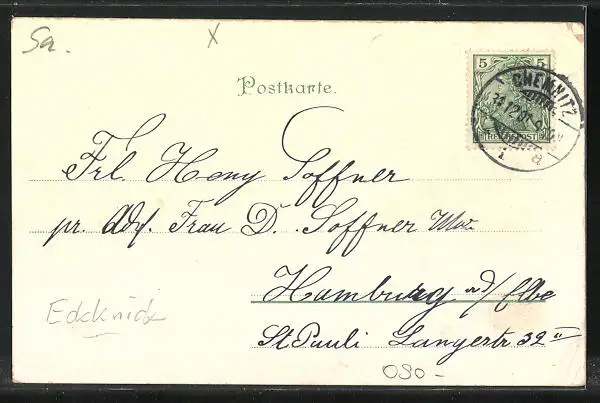 Sa. X
Postkarte.
5 5
REICHSPOST
CHEMNITZ
31.12.01
1 a
Frl. Hony Soffner
pr. Adr. Frau D. Soffner Mw.
Hamburg a/Elbe
St Pauli Langerstr 32 II
Eckknick
090-